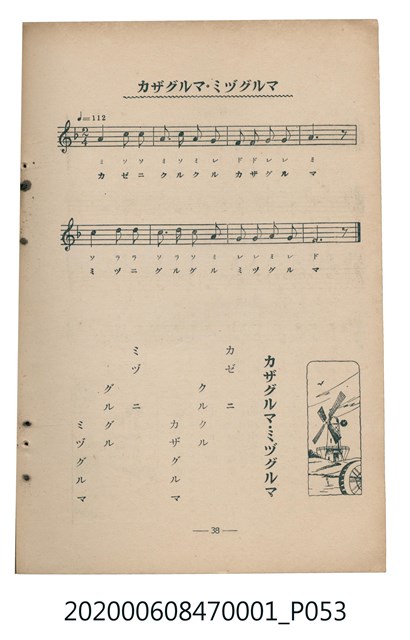 カザグルマ・ミヅグルマ
♩=112
ミ ソ ソ ミ ソ ミ レ ド ド レ レ ミ
カ ゼ ニ ク ル ク ル カ ザ グ ル マ
ソ ラ ラ ソ ラ ソ ミ レ レ ミ レ ド
ミ ヅ ニ グ ル グ ル ミ ヅ グ ル マ
カザグルマ・ミヅグルマ
カゼニ
クルクル
カザグルマ
ミヅニ
グルグル
ミヅグルマ
— 38 —
202000608470001_P053